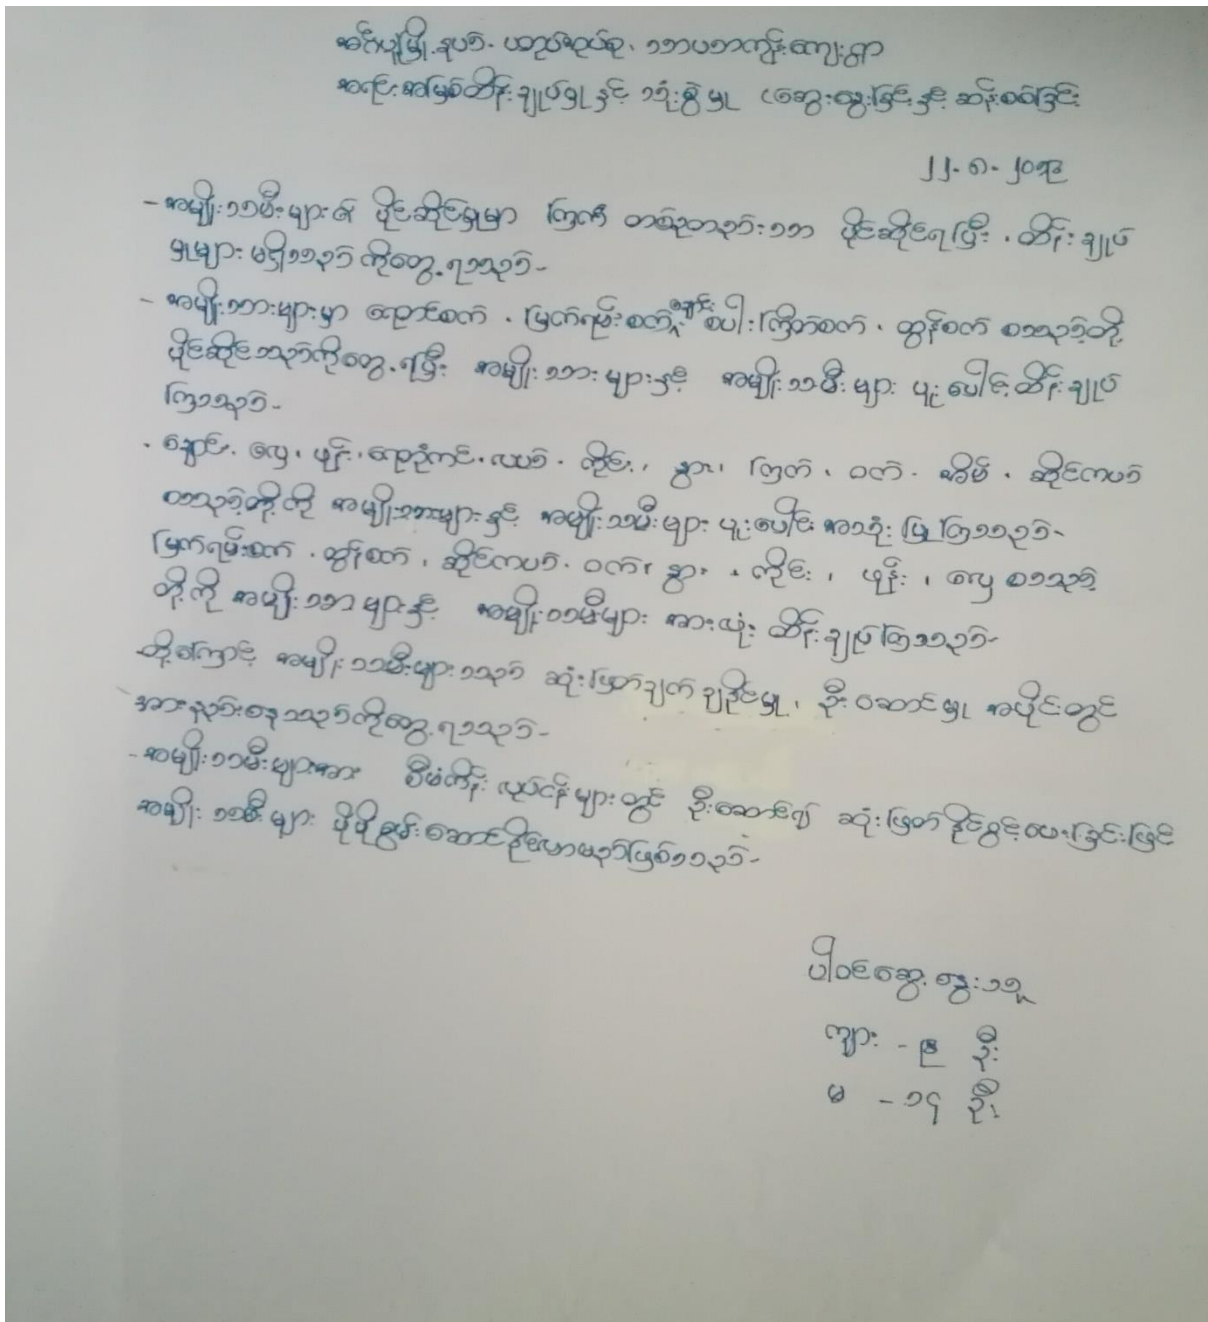 အင်္ဂပူမြို့နယ်၊ ပထုပ်အုပ်စု၊ သာပဘာကျွန်းကျေးရွာ
အရင်းအမြစ်ထိန်းချုပ်မှုနှင့် သုံးစွဲမှု (ဆွေးနွေးခြင်းနှင့် ဆန်းစစ်ခြင်း
၂၂.၈.၂၀၁၃
- အမျိုးသမီးများ၏ ပိုင်ဆိုင်မှုမှာ ကြက် တစ်ခုတည်းသာ ပိုင်ဆိုင်ရပြီး . ထိန်းချုပ်
မှုများ မရှိသည် ကိုတွေ့ရသည် -
- အမျိုးသားများမှာ ရေတင်စက် . မြက်ရမ်းစက် ချောင်း စပါးကြိတ်စက် . ထွန်စက် စသည့်တို့
ပိုင်ဆိုင်သည်ကိုတွေ့ရပြီး အမျိုးသားများနှင့် အမျိုးသမီးများ ပူးပေါင်းထိန်းချုပ်
ကြသည် -
. ချောင်း . လှေ . ဖုန်း . ရေတွင်းကန် . လယ် . ကိုင်း . နွား . ကြက် . ဝက် . အိမ် . ဆိုင်ကယ်
စသည့်တို့ကို အမျိုးသားများနှင့် အမျိုးသမီးများ ပူးပေါင်း အသုံးပြုကြသည် -
မြက်ရမ်းစက် . ထွန်စက် . ဆိုင်ကယ် . ဝက် . နွား . ကိုင်း . ဖုန်း . လှေ စသည့်
တို့ကို အမျိုးသားများနှင့် အမျိုးသမီးများ အားလုံး ထိန်းချုပ်ကြသည် -
ထို့ကြောင့် အမျိုးသမီးများသည် ဆုံးဖြတ်ချက်ချနိုင်မှု၊ ဦးဆောင်မှု အပိုင်းတွင်
အားနည်းနေသည်ကိုတွေ့ရသည် -
- အမျိုးသမီးများအား စီမံကိန်း လုပ်ငန်းများတွင် ဦးဆောင်၍ ဆုံးဖြတ်နိုင်ခွင့်ပေးခြင်းဖြင့်
အမျိုးသမီးများ ပိုမိုစွမ်းဆောင်နိုင်လာမည်ဖြစ်သည် -
ပါဝင်ဆွေးနွေးသူ
ကျား - ၉ ဦး
မ - ၁၄ ဦး